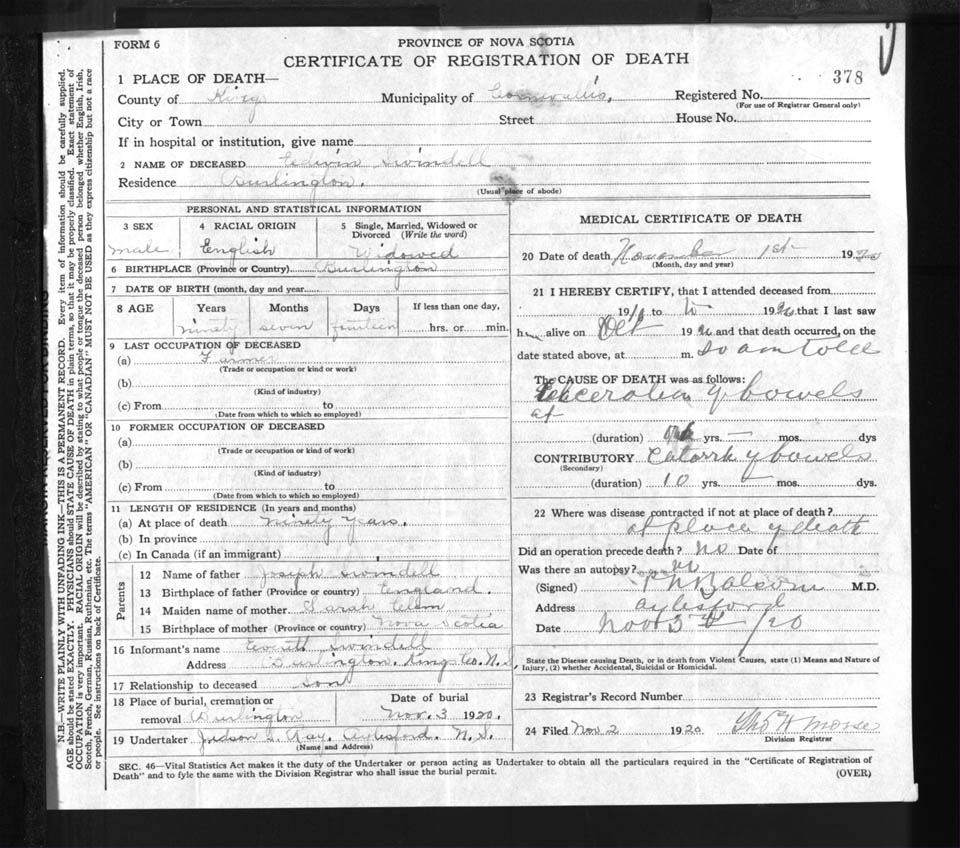 FORM 6
PROVINCE OF NOVA SCOTIA
CERTIFICATE OF REGISTRATION OF DEATH
378
1 PLACE OF DEATH—
County of Kings Municipality of Cornwallis, Registered No.
(For use of Registrar General only)
City or Town Street House No.
If in hospital or institution, give name
2 NAME OF DECEASED Edwin Swindell
Residence Burlington.
(Usual place of abode)
PERSONAL AND STATISTICAL INFORMATION
3 SEX 4 RACIAL ORIGIN 5 Single, Married, Widowed or Divorced (Write the word)
male English Widowed
6 BIRTHPLACE (Province or Country) Burlington
7 DATE OF BIRTH (month, day and year)
8 AGE Years Months Days If less than one day,
ninety seven fourteen hrs. or min.
9 LAST OCCUPATION OF DECEASED
(a) Farmer
(Trade or occupation or kind or work)
(b)
(Kind of industry)
(c) From to
(Date from which to which so employed)
10 FORMER OCCUPATION OF DECEASED
(a)
(Trade or occupation or kind of work)
(b)
(Kind of industry)
(c) From to
(Date from which to which so employed)
11 LENGTH OF RESIDENCE (In years and months)
(a) At place of death ninety years.
(b) In province
(c) In Canada (if an immigrant)
Parents
12 Name of father Joseph Swindell
13 Birthplace of father (Province or country) England.
14 Maiden name of mother Sarah
15 Birthplace of mother (Province or country) Nova Scotia
16 Informant's name Swindell
Address Burlington, Kings Co. N.S.
17 Relationship to deceased Son
18 Place of burial, cremation or removal Burlington
Date of burial Nov. 3 1920.
19 Undertaker Judson Aylesford. N.S.
(Name and Address)
MEDICAL CERTIFICATE OF DEATH
20 Date of death November 1st 1920
(Month, day and year)
21 I HEREBY CERTIFY, that I attended deceased from
19 to 19 that I last saw
h alive on Oct 19 and that death occurred, on the
date stated above, at m. so am told
The CAUSE OF DEATH was as follows:
Ulceration of bowels
(duration) yrs. mos. dys
CONTRIBUTORY Catarrh of bowels
(Secondary)
(duration) 10 yrs. mos. dys.
22 Where was disease contracted if not at place of death?
at place of death
Did an operation precede death? no Date of
Was there an autopsy? no
(Signed) Balcom M.D.
Address Aylesford
Date Nov 3rd /20
State the Disease causing Death, or in death from Violent Causes, state (1) Means and Nature of
Injury, (2) whether Accidental, Suicidal or Homicidal.
23 Registrar's Record Number
24 Filed Nov 2 1920 Thos H Morse
Division Registrar
SEC. 46—Vital Statistics Act makes it the duty of the Undertaker or person acting as Undertaker to obtain all the particulars required in the "Certificate of Registration of
Death" and to fyle the same with the Division Registrar who shall issue the burial permit.
(OVER)
N.B.—WRITE PLAINLY WITH UNFADING INK—THIS IS A PERMANENT RECORD. Every item of information should be carefully supplied.
AGE should be stated EXACTLY. PHYSICIANS should STATE CAUSE OF DEATH in plain terms, so that it may be properly classified. Exact statement of
OCCUPATION is very important. RACIAL ORIGIN will be described by stating to what people or tongue the deceased person belonged whether English, Irish,
Scotch, French, German, Russian, Ruthenian, etc. The terms "AMERICAN" OR "CANADIAN" MUST NOT BE USED as they express citizenship but not a race
or people. See instructions on back of Certificate.